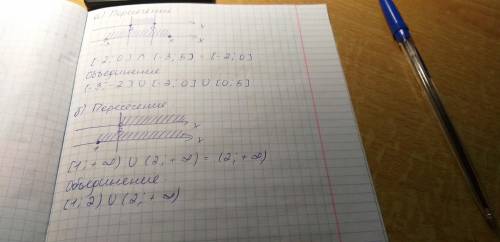 а) Пересечение
x
x
[-2; 0] ∩ (-3; 5) = [-2; 0]
Объединение
(-3; -2] ∪ [-2; 0] ∪ [0; 5)
б) Пересечение
x
x
[1; +∞) ∪ (2; +∞) = (2; +∞)
Объединение
[1; 2) ∪ (2; +∞)